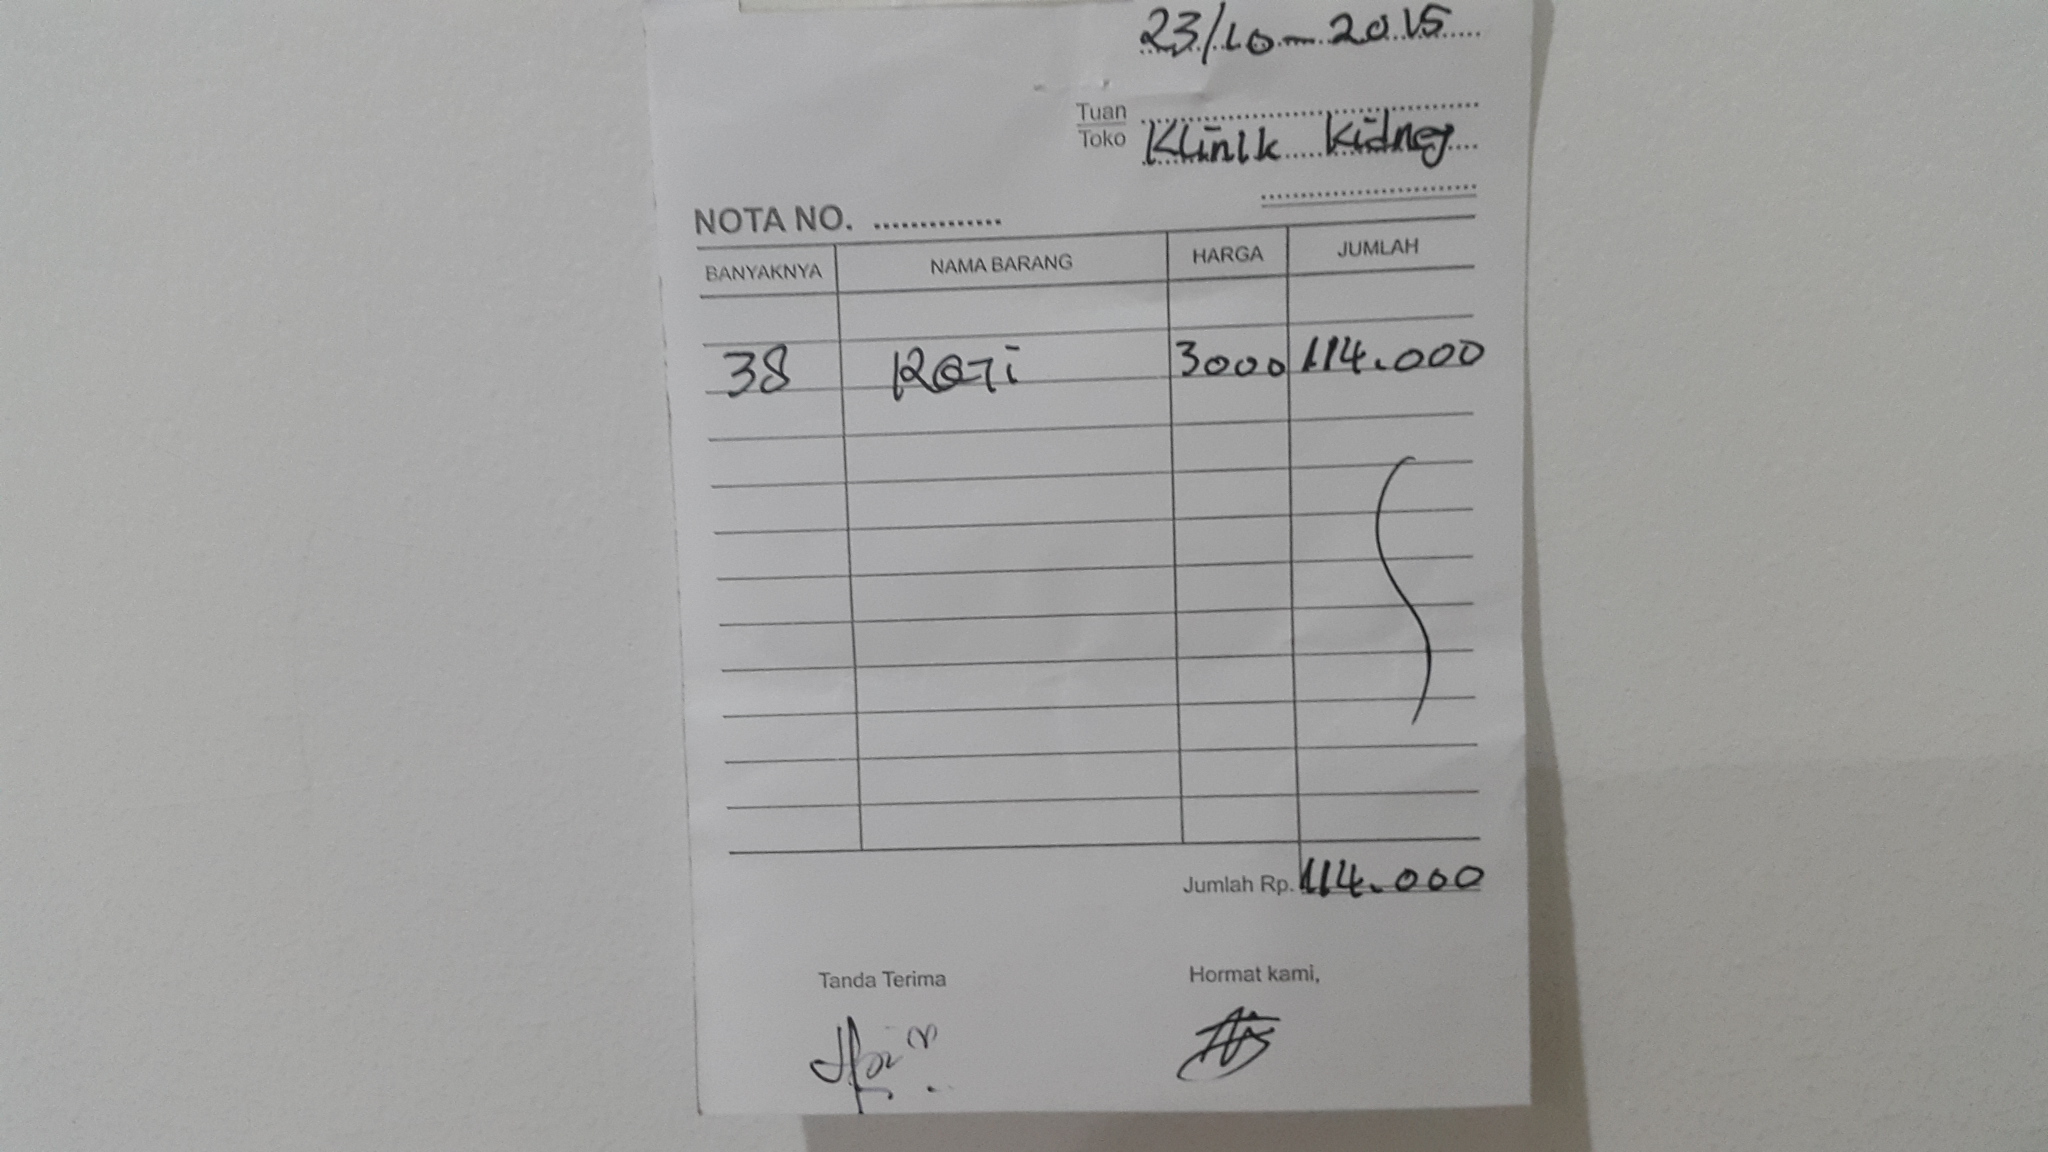 23/10-2015
Tuan
Toko Klinik Kidney
NOTA NO. ..............
BANYAKNYA NAMA BARANG HARGA JUMLAH
38 Roti 3000 114.000
Jumlah Rp. 114.000
Tanda Terima Hormat kami,